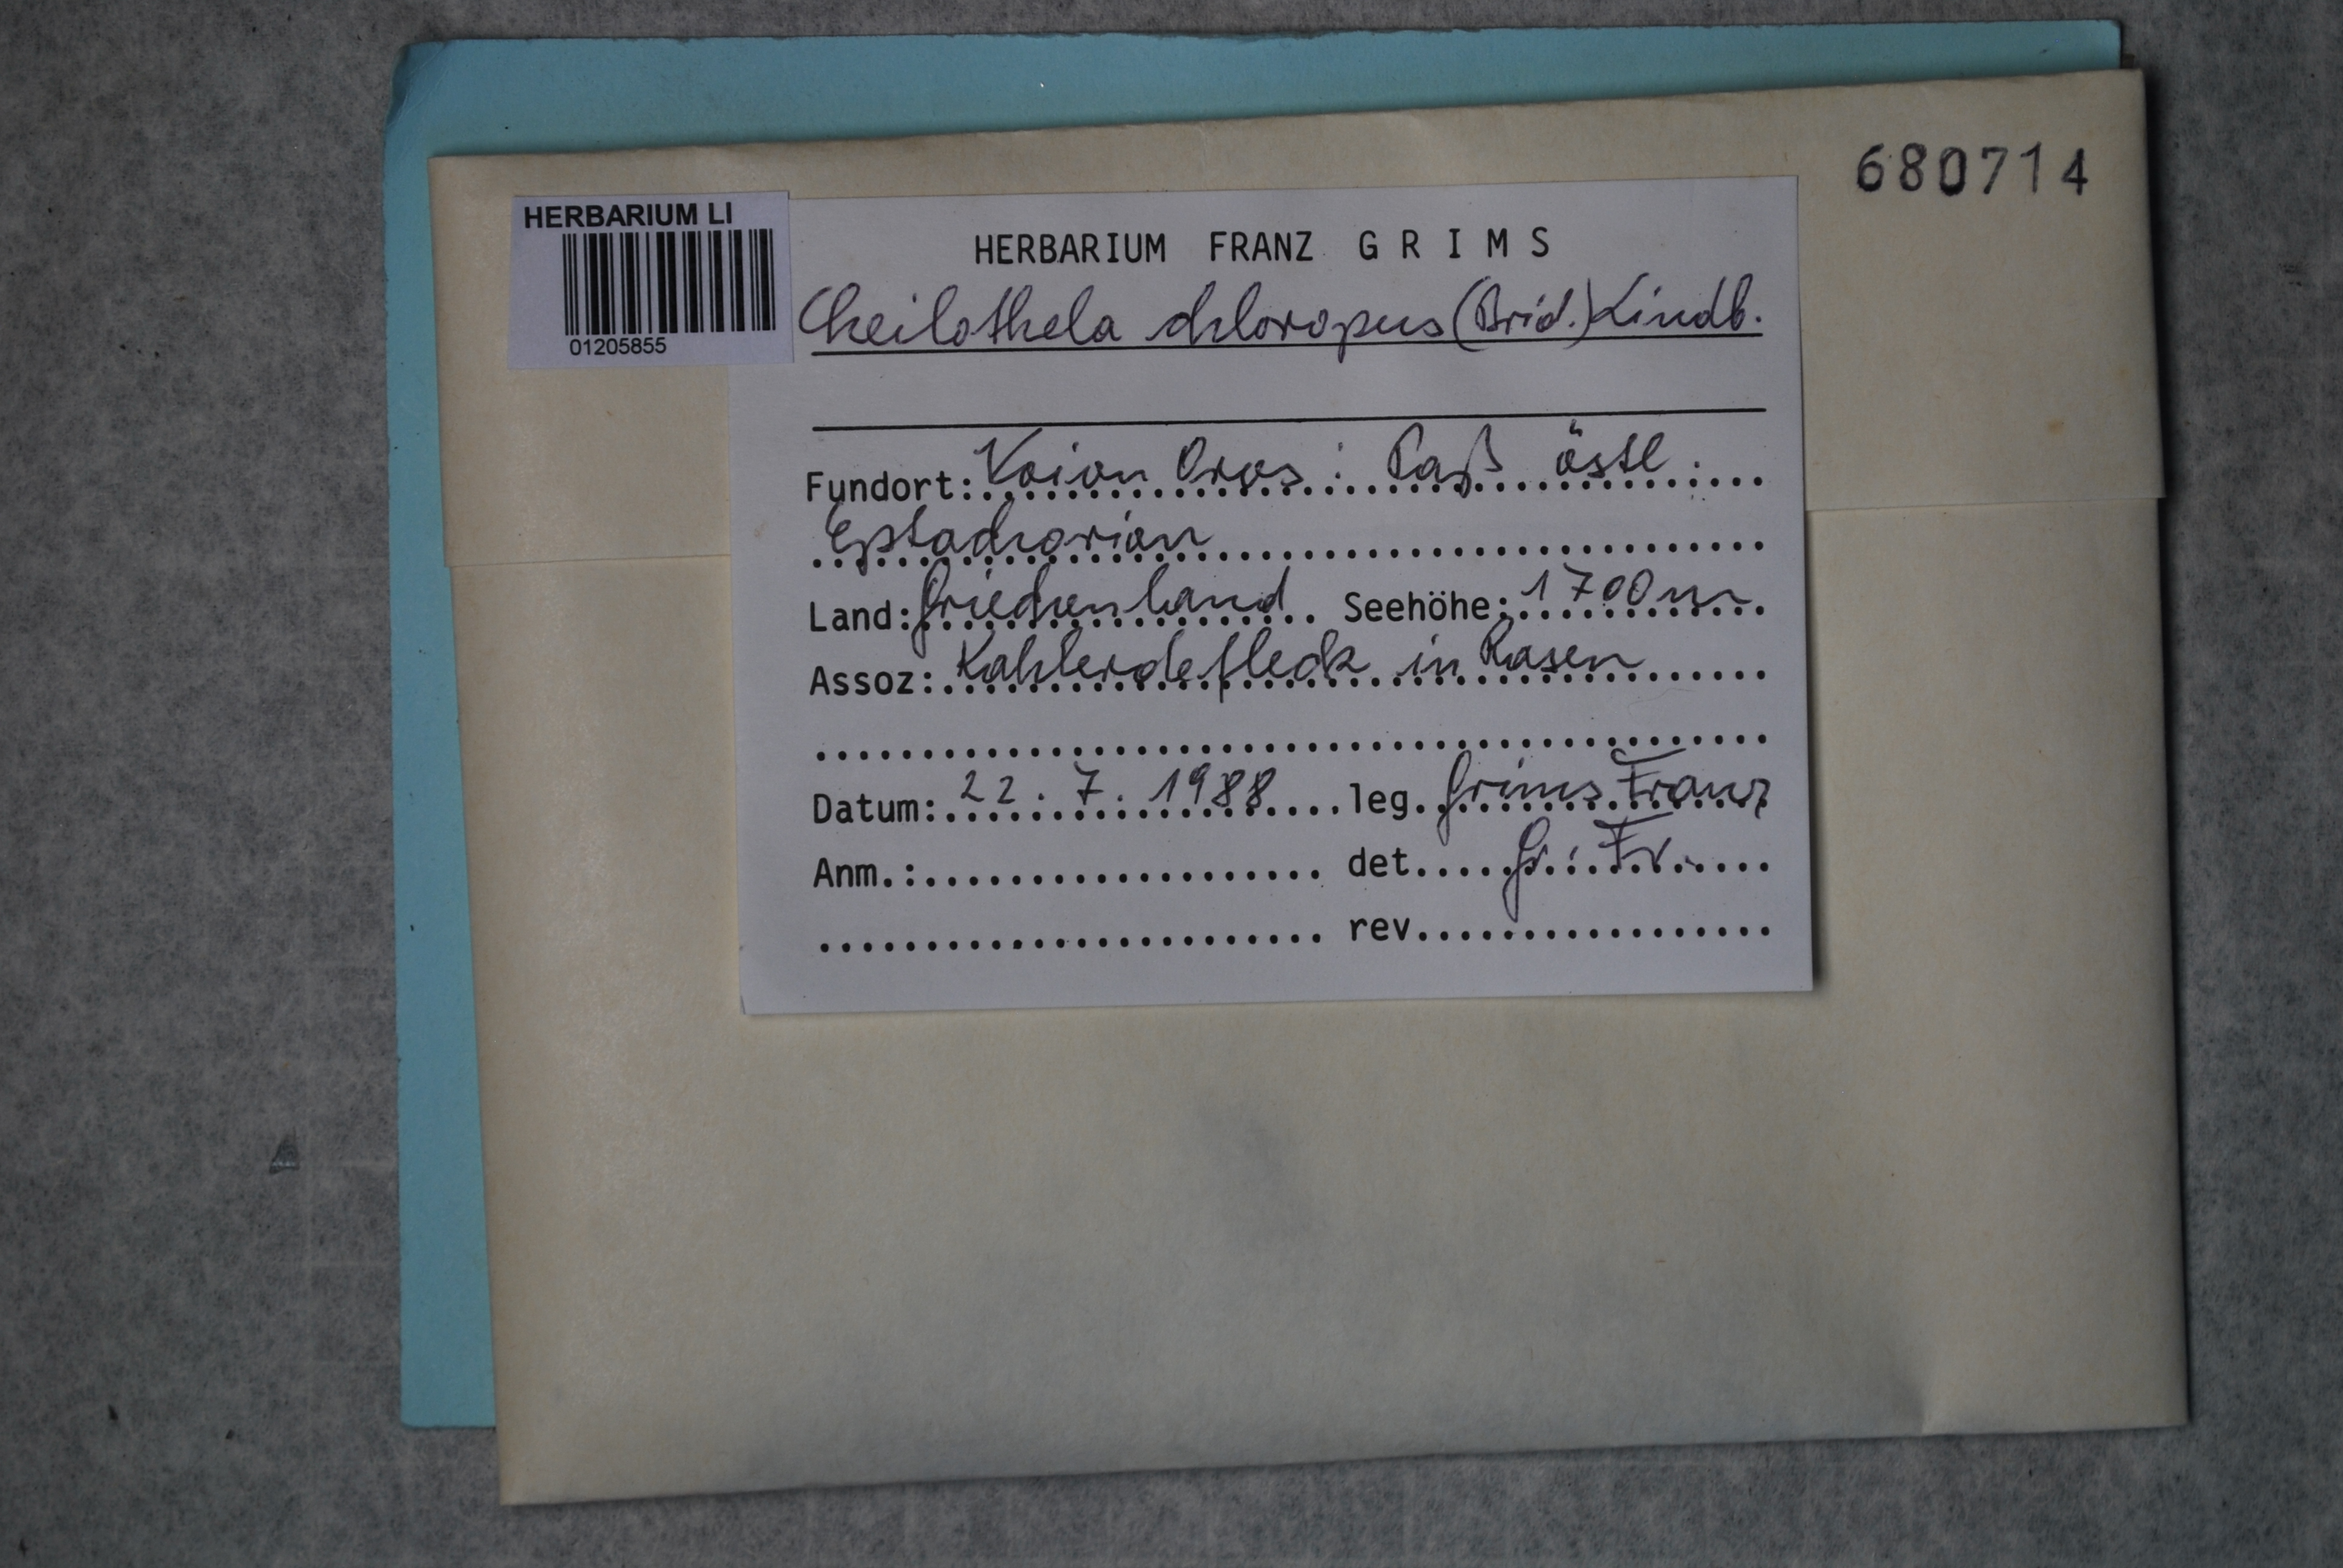 680714
HERBARIUM LI
01205855
HERBARIUM FRANZ GRIMS
Cheilothela chloropus (Brid.) Lindb.
Fundort: Voion Oros: Paß östl.
Eptachorion
Land: Griechenland Seehöhe: 1700m
Assoz: Kahlerdefleck in Rasen
Datum: 22. 7. 1988 leg. Grims Franz
Anm.: det. Gr. Fr.
rev.